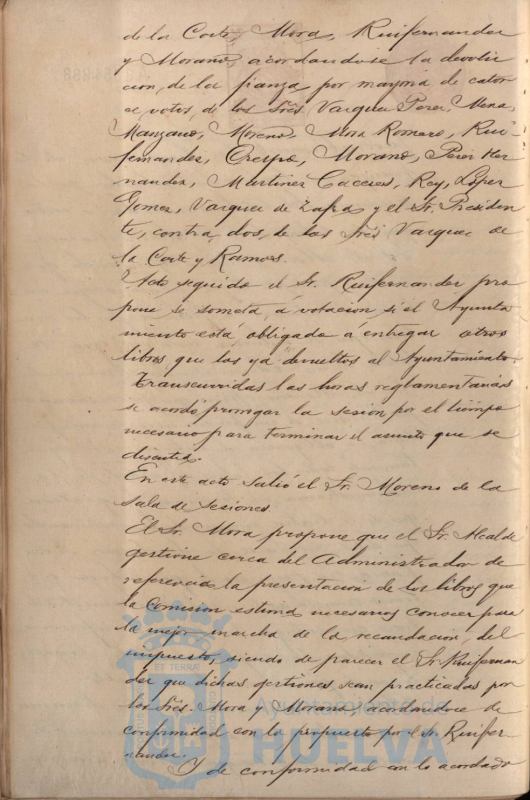 de la Corte, Mora, Ruifernandez
y Morano, acordandose la devolu
cion, de la fianza por mayoria de cator
ce votos, de los Sres Vazquez Perez, Mena,
Manzano, Moreno, Mora Romero, Rui-
fernandez, Crespo, Morano, Perez Her
nandez, Martinez Caceres, Rey, Lopez
Gomez, Vazquez de Zafra y el Sr. Presiden
te, contra dos, de los Sres Vazquez de
la Corte y Ramos.
Acto seguido el Sr. Ruifernandez pro
pone se someta á votacion si el Ayunta
miento está obligado á entregar otros
libros que los ya devueltos al Ayuntamiento.
Transcurridas las horas reglamentarias
se acordó prorrogar la sesion por el tiempo
necesario para terminar el asunto que se
discutia.
En este acto salió el Sr. Moreno de la
sala de sesiones.
El Sr. Mora propone que el Sr. Alcalde
gestione cerca del Administrador de
referencia la presentacion de los libros que
la Comision estima necesarios conocer para
la mejor marcha de la recaudacion del
impuesto, siendo de parecer el Sr. Ruifernan
dez que dichas gestiones sean practicadas por
los Sres. Mora y Morano, acordandose de
conformidad con lo propuesto por el Sr. Ruifer
nandez.
Y de conformidad con lo acordado
ET TERRAE
Ayuntamiento de
HUELVA